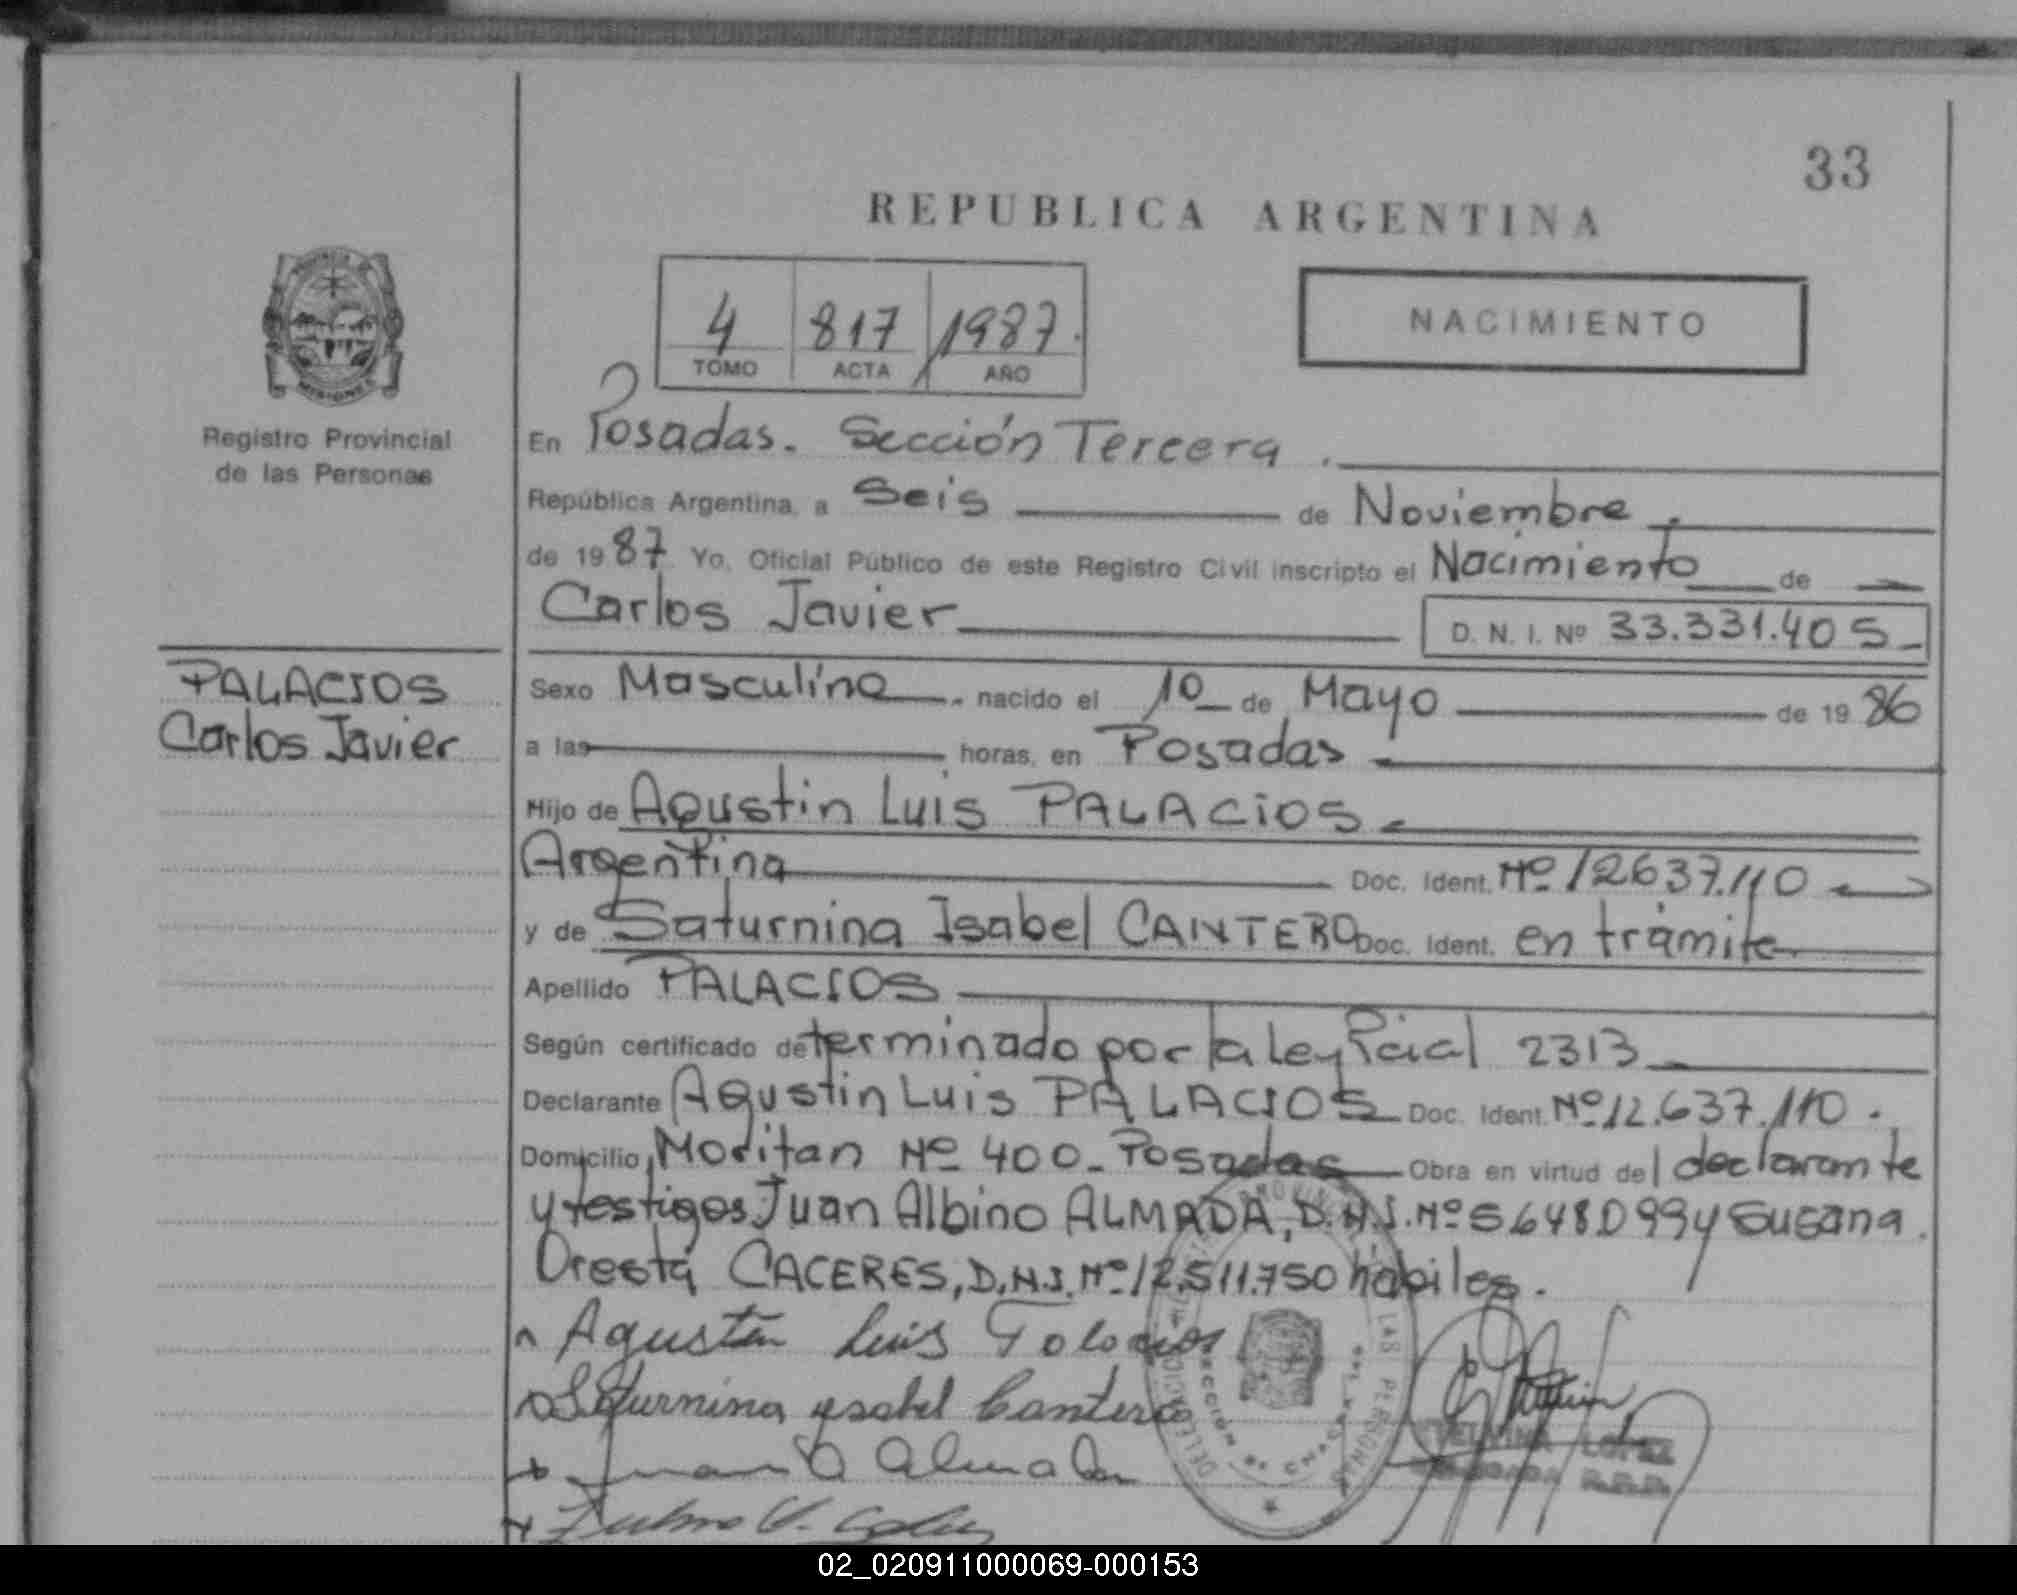 33
REPUBLICA ARGENTINA
4 817 1987.
TOMO ACTA AÑO
NACIMIENTO
Registro Provincial
de las Personas
PALACIOS
Carlos Javier
En Posadas. Sección Tercera.
República Argentina, a Seis de Noviembre.
de 1987. Yo, Oficial Público de este Registro Civil inscripto el Nacimiento de
Carlos Javier D. N. I. Nº 33.331.405
Sexo Masculino. nacido el 10 de Mayo de 1986
a las horas, en Posadas
Hijo de Agustin Luis PALACIOS
Argentina Doc. Ident. Nº 12637.110
y de Saturnina Isabel CANTERO Doc. Ident. en trámite
Apellido PALACIOS
Según certificado determinado por la ley Pcial 2313
Declarante Agustin Luis PALACIOS Doc. Ident. Nº 12.637.110.
Domicilio Moritan Nº 400_ Posadas Obra en virtud del declarante
y testigos Juan Albino ALMADA, D.N.I. Nº 5648099 y Susana
Oresta CACERES, D.N.I. Nº 12.511.750 habiles.
Agustin Luis Palacios
Saturnina ysabel Cantero
Juan A Almada
LOPEZ
02_020911000069-000153